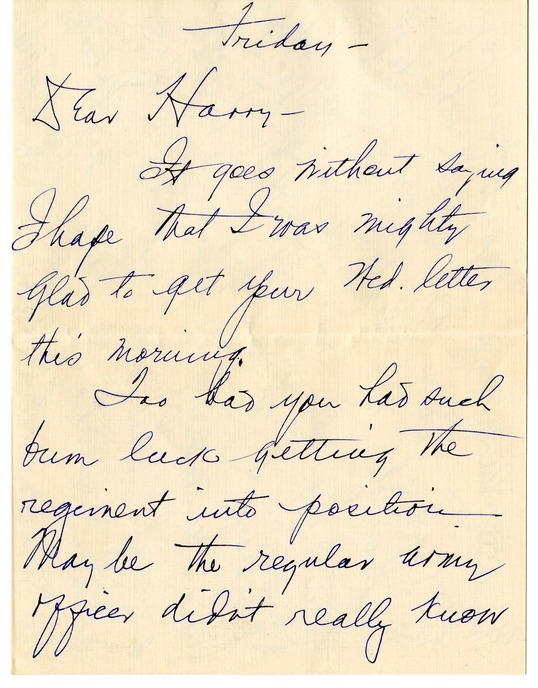 Friday -
Dear Harry -
It goes without saying
I hope that I was mighty
glad to get your Wed. letter
this morning.
Too bad you had such
bum luck getting the
regiment into position
May be the regular army
officer didn't really know